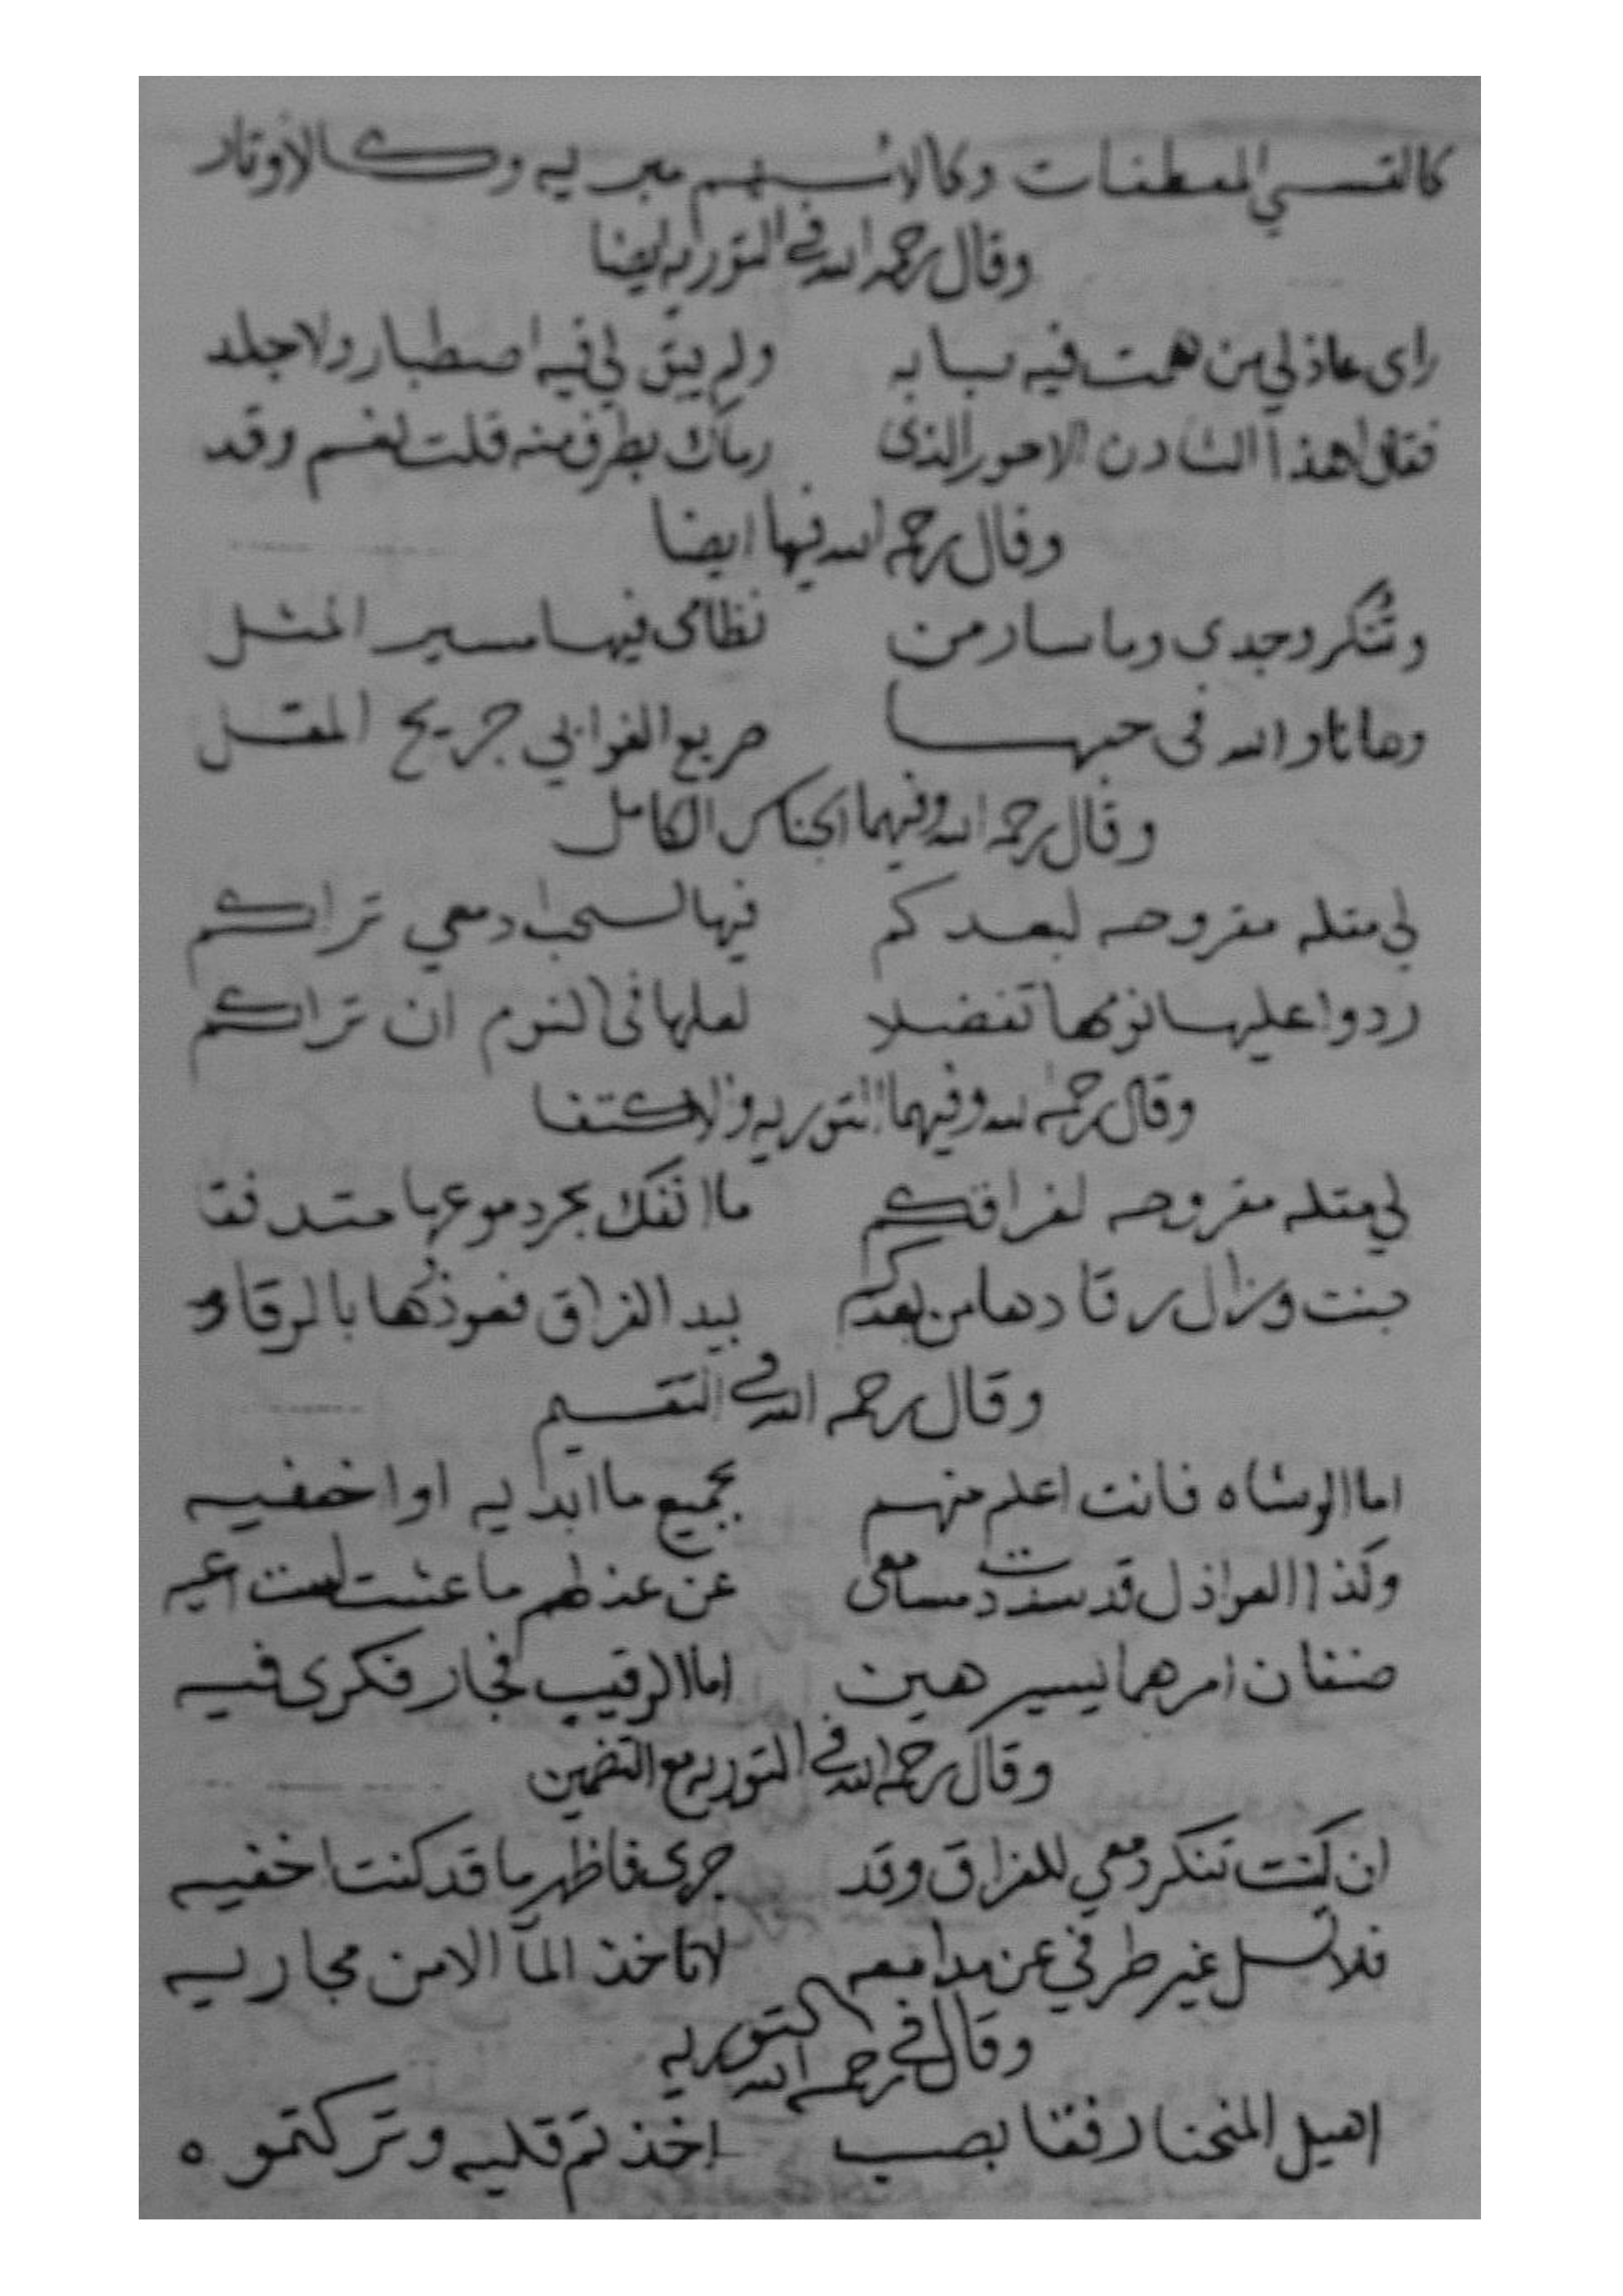 كالقسي المعطفات وكالاسهم مبريه وكالاوتار
وقال رحمه الله في التوريه ايضا
راى عاذلي من همت فيه صبابه ولم يبق لي فيه اصطبار ولا جلد
فقال اهذا الشادن الاحور الذى رماك بطرف منه قلت نعم وقد
وقال رحمه الله فيها ايضا
وتنكر وجدى وما سار من نظامى فيها مسير المثل
وها انا والله فى حبها صريع الغواني جريح المقل
وقال رحمه الله وفيهما الجناس الكامل
لي مقله مقروحه لبعدكم فيها لسحب دمعي تراكم
ردوا عليها نومها تفضلا لعلها فى النوم ان تراكم
وقال رحمه الله وفيهما التوريه والاكتفا
لي مقله مقروحه لفراقكم ما انفك بحر دموعها متدفقا
جنت وزال رقادها من بعدكم بيد الفراق فعوذوها بالرقاد
وقال رحمه الله في التقسيم
اما الوشاه فانت اعلم منهم بجميع ما ابديه او اخفيه
وكذا العواذل قد سددت مسامعى عن عذلهم ما عشت لست اعيه
صنفان امرهما يسير هين اما الرقيب فحار فكرى فيه
وقال رحمه الله في التوريه مع التضمين
ان كنت تنكر دمعي للفراق وقد جرى فاظهر ما قد كنت اخفيه
فلا تسل غير طرفي عن مدامعه لا تاخذ المآ الا من مجاريه
وقال رحمه الله في التوريه
اهيل المنحنا رفقا بصب اخذتم قلبه وتركتموه